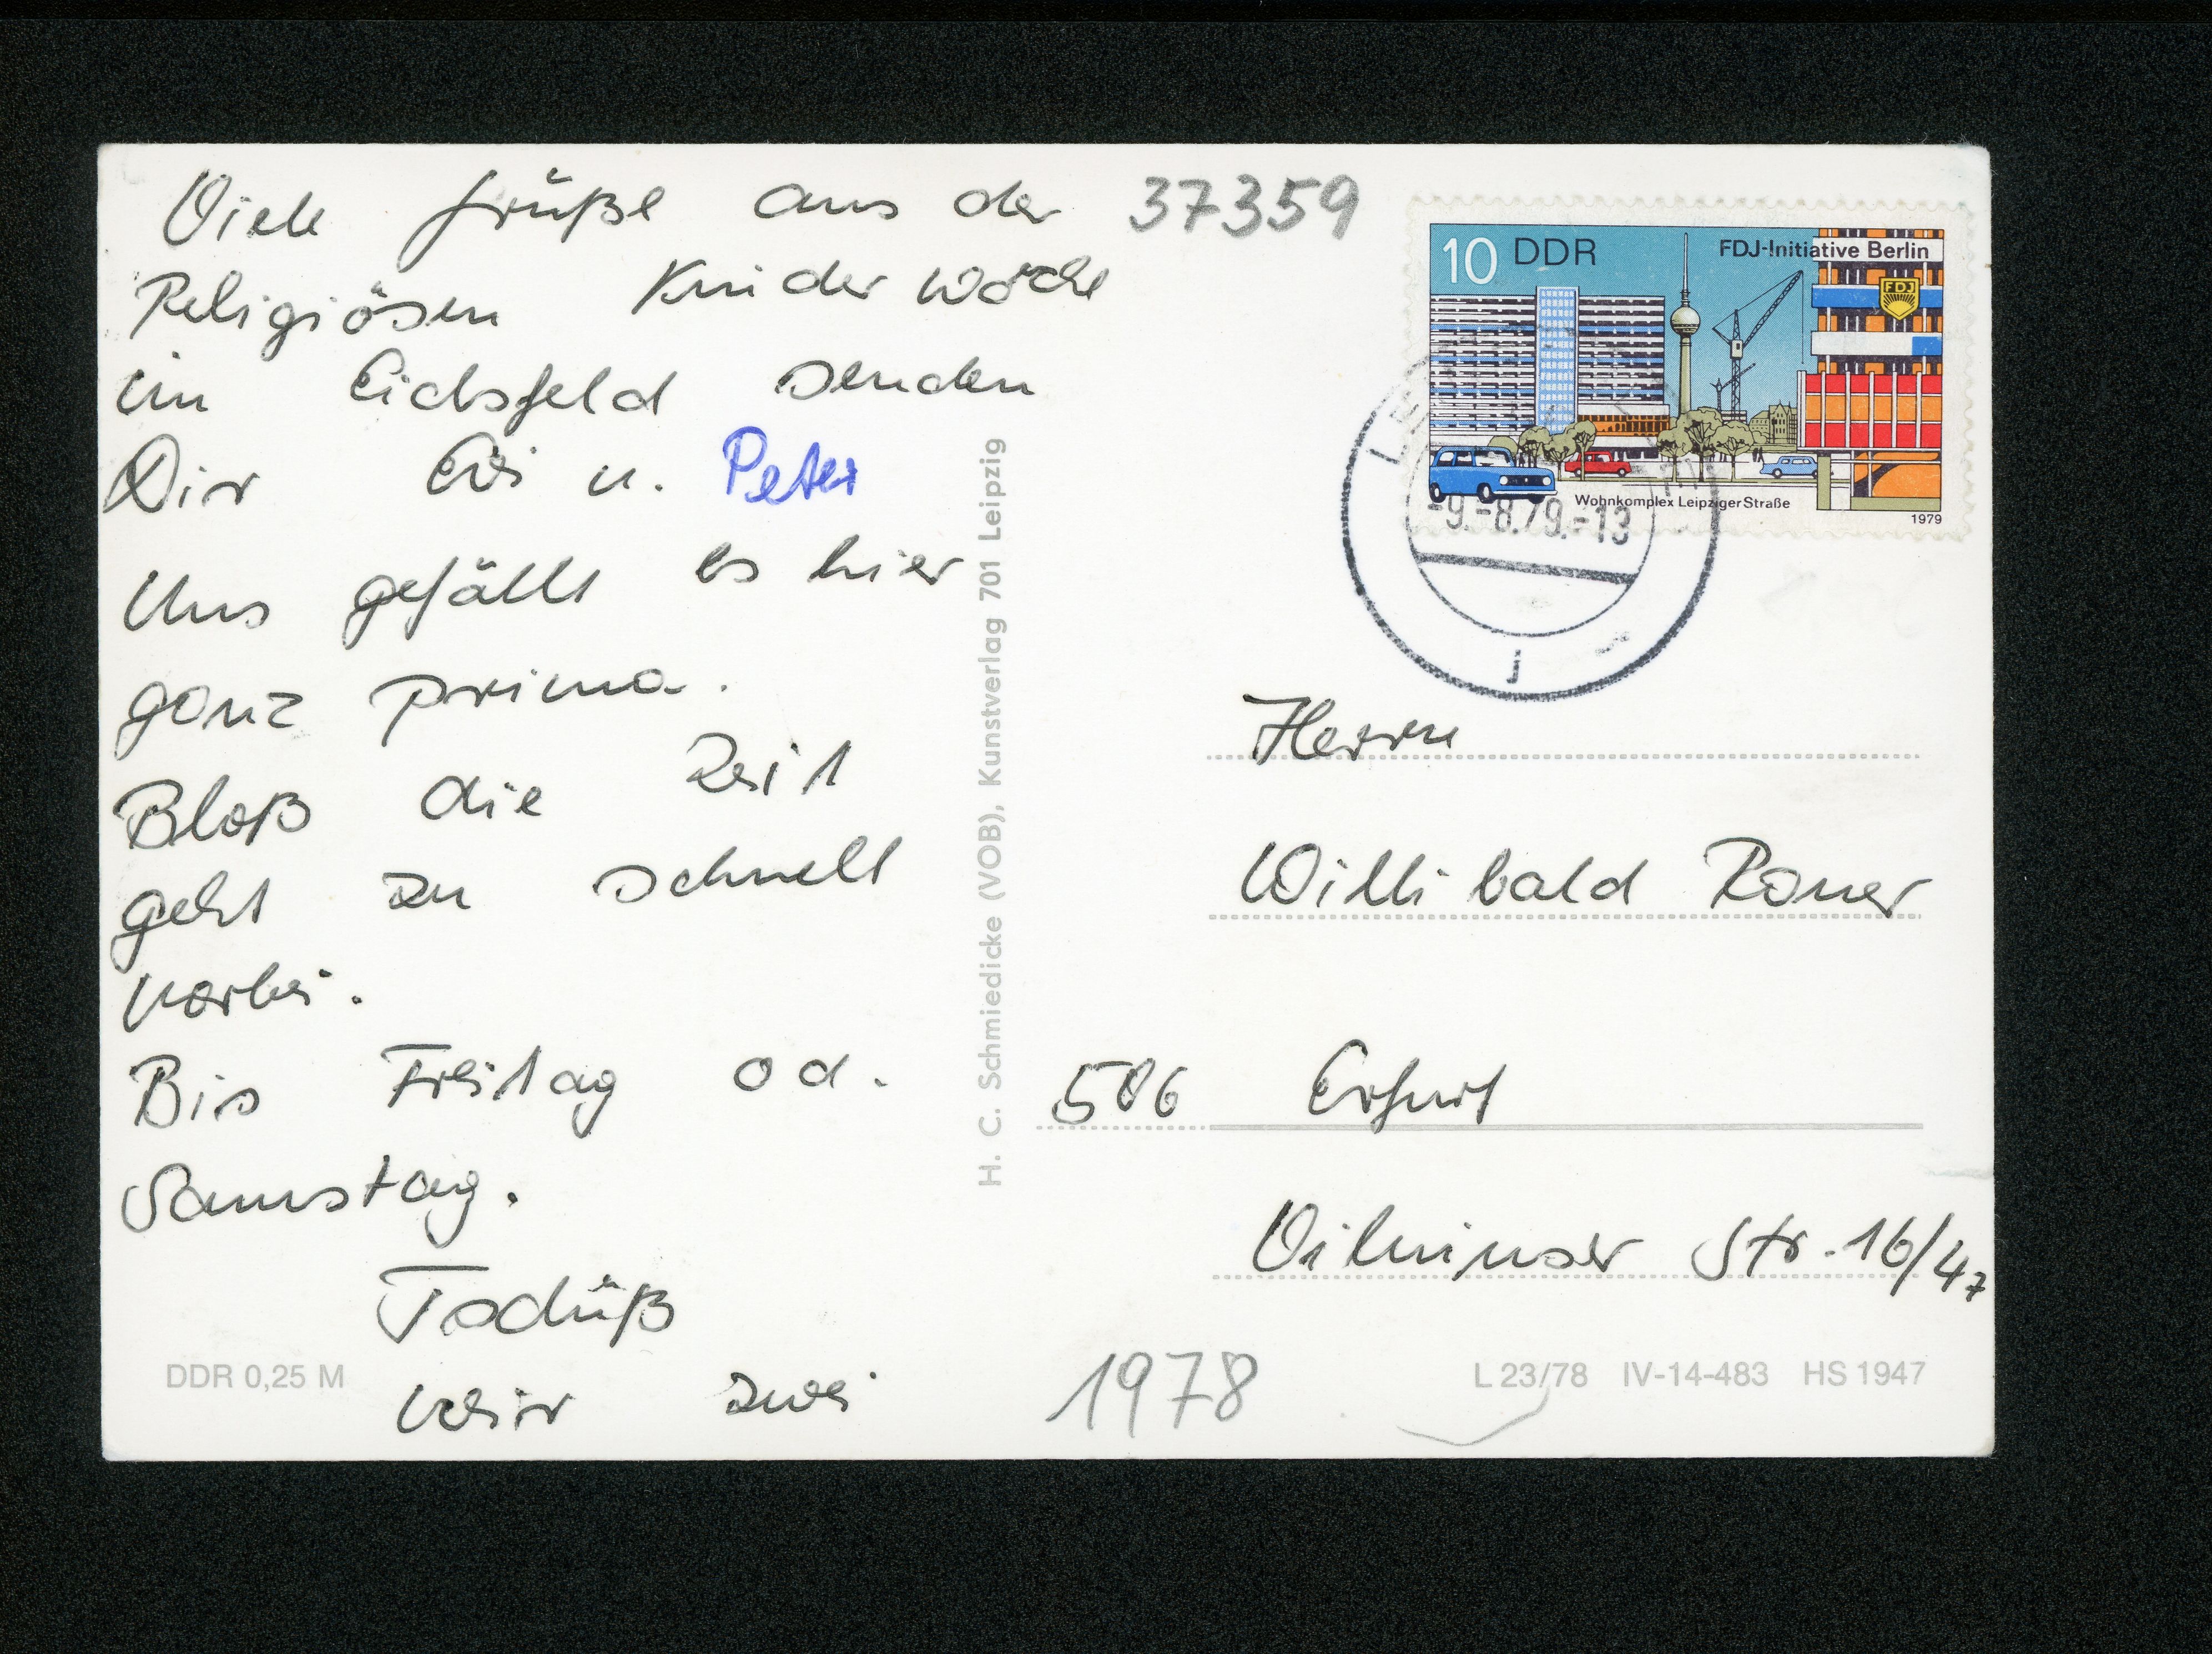 Viele Grüße aus der
Religiösen Kinderwoche
im Eichsfeld senden
Dir Evi u. Peter
Uns gefällt es hier
ganz prima.
Bloß die Zeit
geht zu schnell
vorbei.
Bis Freitag od.
Samstag.
Tschüß
wir zwei
DDR 0,25 M
H. C. Schmiedicke (VOB), Kunstverlag 701 Leipzig
37359
10 DDR
FDJ-Initiative Berlin
FDJ
Wohnkomplex Leipziger Straße
1979
-9.-8.79.-13
j
Herrn
Willibald Roner
506 Erfurt
Vilniuser Str. 16/47
1978
L 23/78 IV-14-483 HS 1947